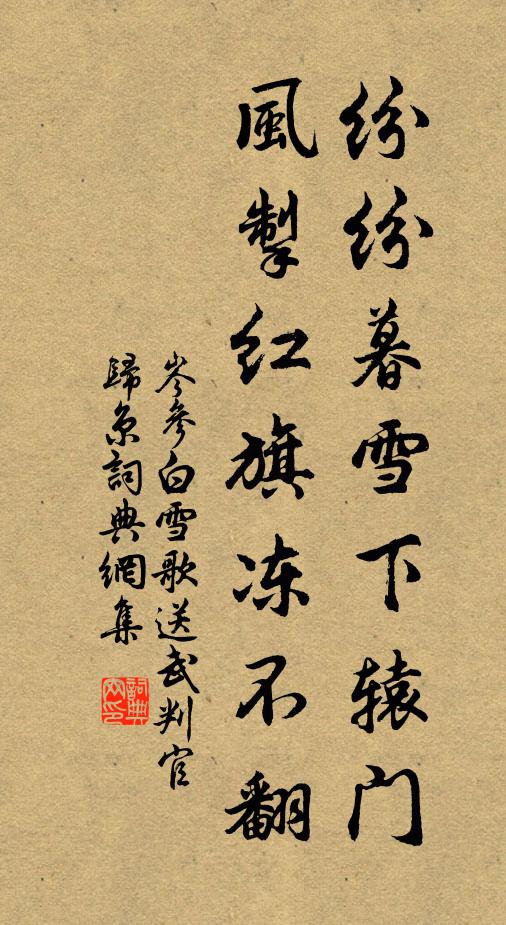 纷纷暮雪下辕门
風掣红旗冻不翻
岑參白雪歌送武判官
歸京詞典網集
詞典
网印